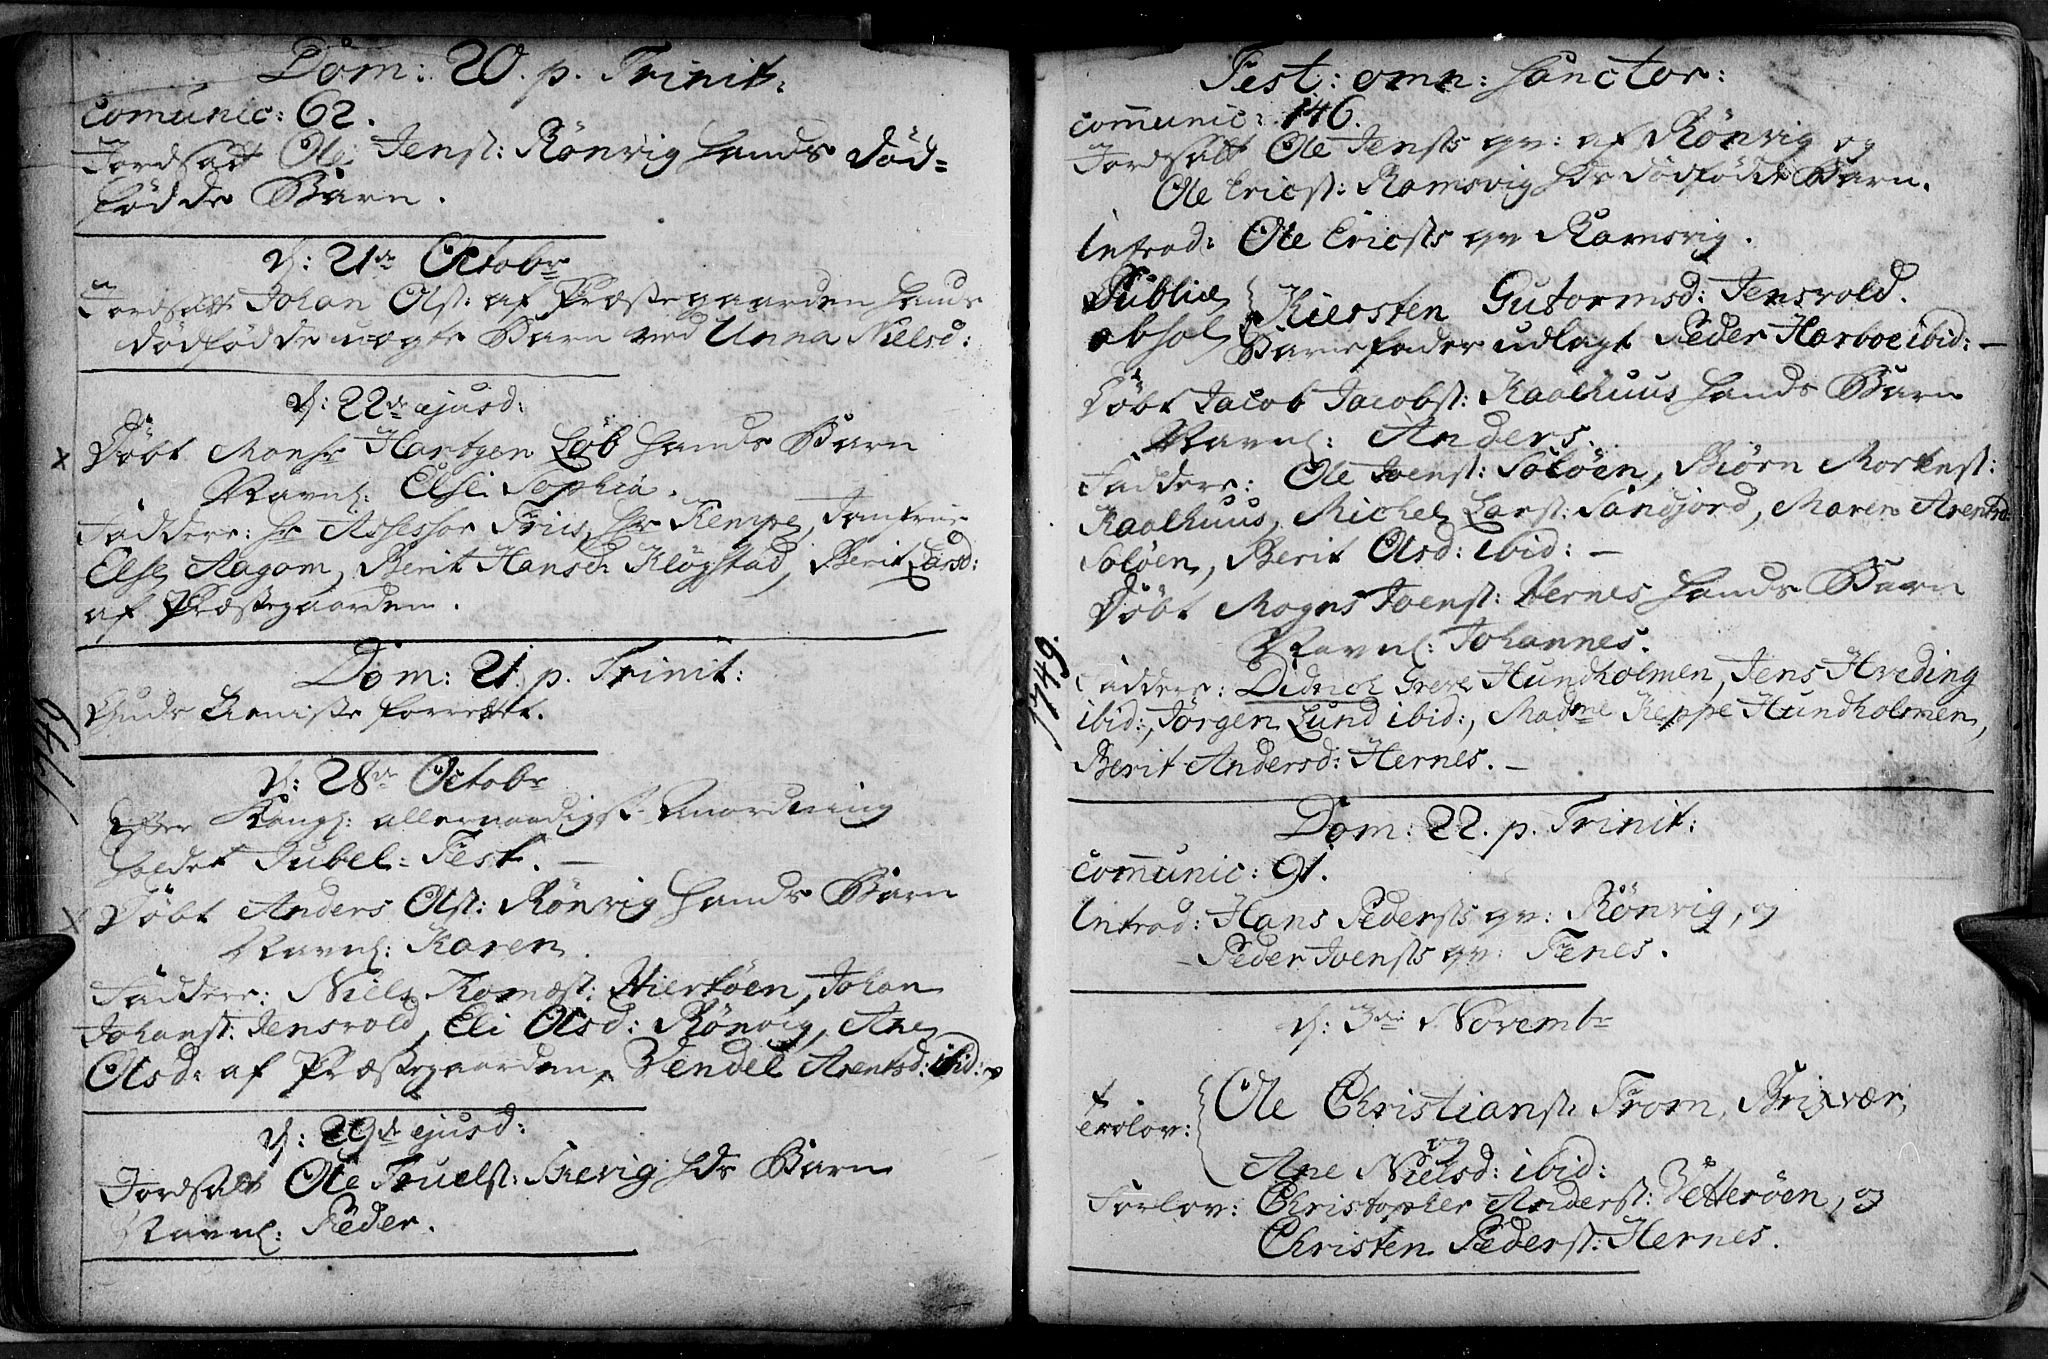 Dom: 20. p. Trinit:
Comunic: 62.
Jordsatt Ole Jens: Rönvig hands död=
födde Barn.
d: 21de Octobr
Jordsatt Johan Ols: af Præstegaarden hands
dödfödde uægte Barn ved Unna Nielsd:
d: 22de ejusd:
x Döbt Monsr Hartvgen Löb hands Barn
Navnl: Else Sophia.
Faddere: Hr Assessor Friis, Hr Kempe, Jomfrue
Else Aagom, Berit Hansd: Klögstad, Berit Larsd:
af Præstegaarden.
Dom: 21. p. Trinit:
Guds Tieniste forrettet.
1749
d: 28de Octobr
Efter Kongl: allernaadigst Anordning
holdet Jubel=Fest.
x Döbt Anders Ols: Rönvig hands Barn
Navnl: Karen.
Faddere: Niels Thomæs: Hiertöen, Johan
Johans: Jensvold, Eli Olsd: Rönvig, Ane
Olsd: af Præstegaarden, Vendel Arentsd: ibid:
d: 29de ejusd:
Jordsatt Ole Truels: Trevig hds Barn
Navnl: Peder.
Fest: omn: Sanctor:
Communic: 146.
Jordsatt Ole Jensts qv: af Rönvig og
Ole Erics: Ramsvig hds dödfödde Barn.
Introd: Ole Ericsts qv Ramsvig.
Public Kiersten Gutormsd: Jensvold.
absol Barnefader udlagt Peder Harboe ibid: —
Döbt Jacob Jacobs: Kaalhuus hands Barn
Navnl: Anders.
Faddere: Ole Ivers: Solöen, Biörn Mortens:
Kaalhuus, Michel Lars: Sandjord, Maren Arentsd:
Solöen, Berit Olsd: ibid: —
Döbt Mogns Joens: Hernes hands Barn
Navnl: Johannes.
1749.
Faddere: Didrich Greve Hundholmen, Jens Hveding
ibid:, Jörgen Lund ibid:, Madme Keppe Hundholmen,
Berit Andersd: Hernes. —
Dom: 22. p. Trinit:
Communic: 91.
Introd: Hans Pedersts qv: Rönvig, og
Peder Joensts qv: Fenes.
d: 3die Novembr
Ole Christians: From, Brixvær,
Trolov: og
Ane Nielsd: ibid:
Forlov: Christopher Anders: Vetteröen, og
Christen Peders: Hernes.